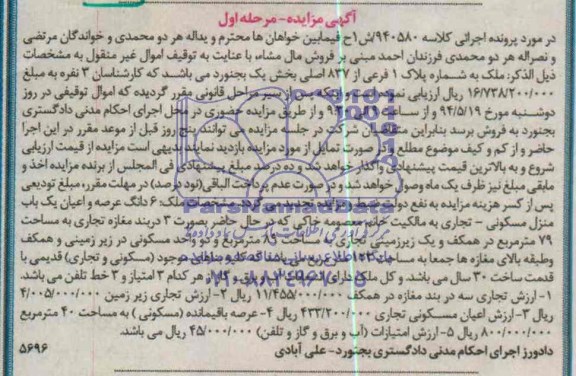 آگهی مزایده- مرحله اول
در مورد پرونده اجرائی کلاسه ۹۴۰۵۸۰/ش۱ح فیمابین خواهان ها محترم و یداله هر دو محمدی و خواندگان مرتضی
و نصراله هر دو محمدی فرزندان احمد مبنی بر فروش مال مشاء، با عنایت به توقیف اموال غیر منقول به مشخصات
ذیل الذکر: ملک به شماره پلاک ۱ فرعی از ۸۳۷ اصلی بخش یک بجنورد می باشد که کارشناسان ۳ نفره به مبلغ
۱۶/۷۳۸/۲۰۰/۰۰۰ ریال ارزیابی نموده پس از سیر مراحل قانونی مقرر گردیده که اموال توقیفی در روز
دوشنبه مورخ ۹۴/۵/۱۹ از ساعت و از طریق مزایده حضوری در محل اجرای احکام مدنی دادگستری
بجنورد به فروش برسد بنابراین متقاضیان شرکت در جلسه مزایده می توانند پنج روز قبل از موعد مقرر در این اجرا
حاضر و از کم و کیف موضوع مطلع و در صورت تمایل از مورد مزایده بازدید نمایند بدیهی است مزایده از قیمت ارزیابی
شروع و به بالاترین قیمت پیشنهادی واگذار خواهد شد و ده درصد مبلغ پیشنهادی فی المجلس از برنده مزایده اخذ و
مابقی مبلغ نیز ظرف یک ماه وصول خواهد شد و در صورت عدم پرداخت الباقی (نود درصد) در مهلت مقرر، مبلغ تودیعی
پس از کسر هزینه مزایده به نفع دولت ضبط و مزایده تجدید می گردد. مشخصات ملک: ۶ دانگ عرصه و اعیان یک باب
منزل مسکونی - تجاری به مالکیت که در حال حاضر بصورت ۳ دربند مغازه تجاری به مساحت
۷۹ مترمربع در همکف و یک زیرزمینی تجاری به مساحت ۸۹ مترمربع و دو واحد مسکونی در زیر زمینی و همکف
وطبقه بالای مغازه ها جمعا به مساحت مترمربع می باشد که کلیه بناهای موجود (مسکونی و تجاری) قدیمی با
قدمت ساخت ۳۰ سال می باشد. و کل ملک دارای هر کدام ۳ امتیاز و ۳ خط تلفن می باشد.
۱- ارزش تجاری سه در بند مغازه در همکف ۱۱/۴۵۵/۰۰۰/۰۰۰ ریال ۲- ارزش تجاری زیر زمین ۴/۰۰۵/۰۰۰/۰۰۰
ریال ۳- ارزش اعیان مسکونی تجاری ۴۳۳/۲۰۰/۰۰۰ ریال ۴- عرصه باقیمانده (مسکونی) به مساحت ۴۰ مترمربع
۸۰۰/۰۰۰/۰۰۰ ریال ۵- ارزش امتیازات (آب و برق و گاز و تلفن) ۴۵/۰۰۰/۰۰۰ ریال می باشد.
دادورز اجرای احکام مدنی دادگستری بجنورد- علی آبادی
۵۶۹۶
ParsNamadData
۰۲۱-۸۸۳۴۹۶۷۰-۵